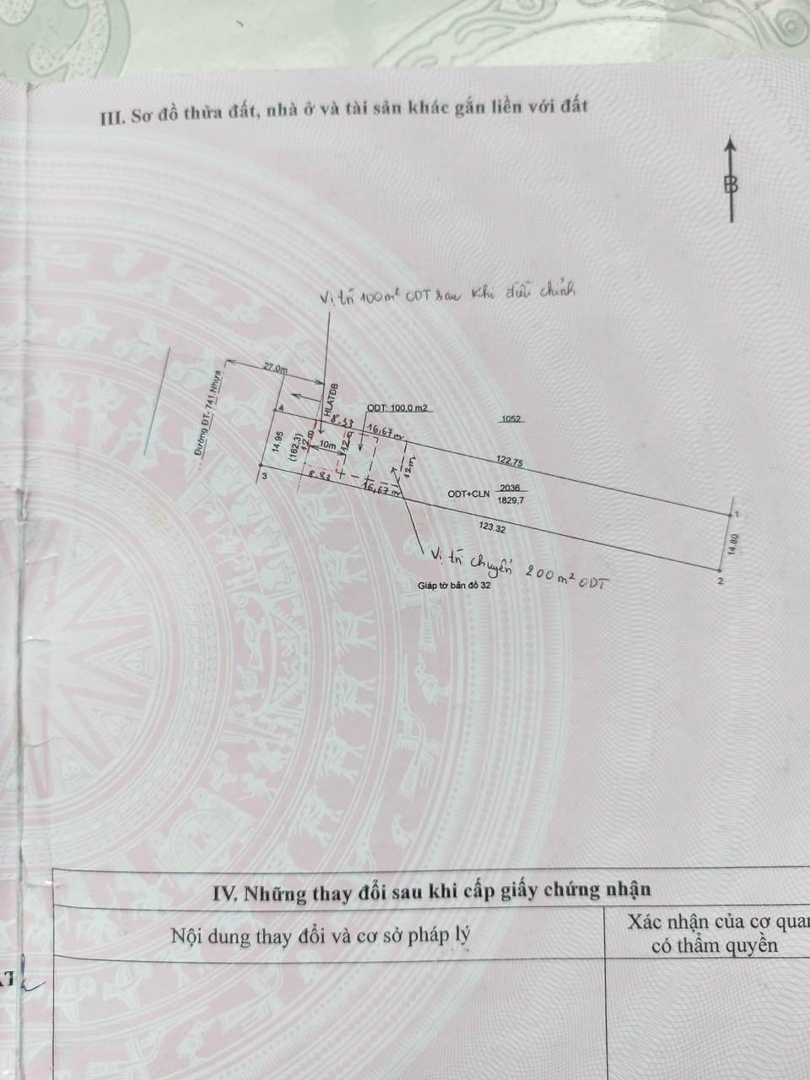 III. Sơ đồ thửa đất, nhà ở và tài sản khác gắn liền với đất
B
Vị trí 100m² ODT sau khi điều chỉnh
27.0m
Đường ĐT- 741 Nhựa
HLATĐB
4
8,53
ODT: 100.0 m2
16,67m
1052
14.95
(162.3)
12m
10m
12m
122.75
3
8.93
16,67m
12m
ODT+CLN
2036
1829.7
1
123.32
14.80
2
Vị trí chuyển 200m² ODT
Giáp tờ bản đồ 32
IV. Những thay đổi sau khi cấp giấy chứng nhận
Nội dung thay đổi và cơ sở pháp lý
Xác nhận của cơ quan
có thẩm quyền